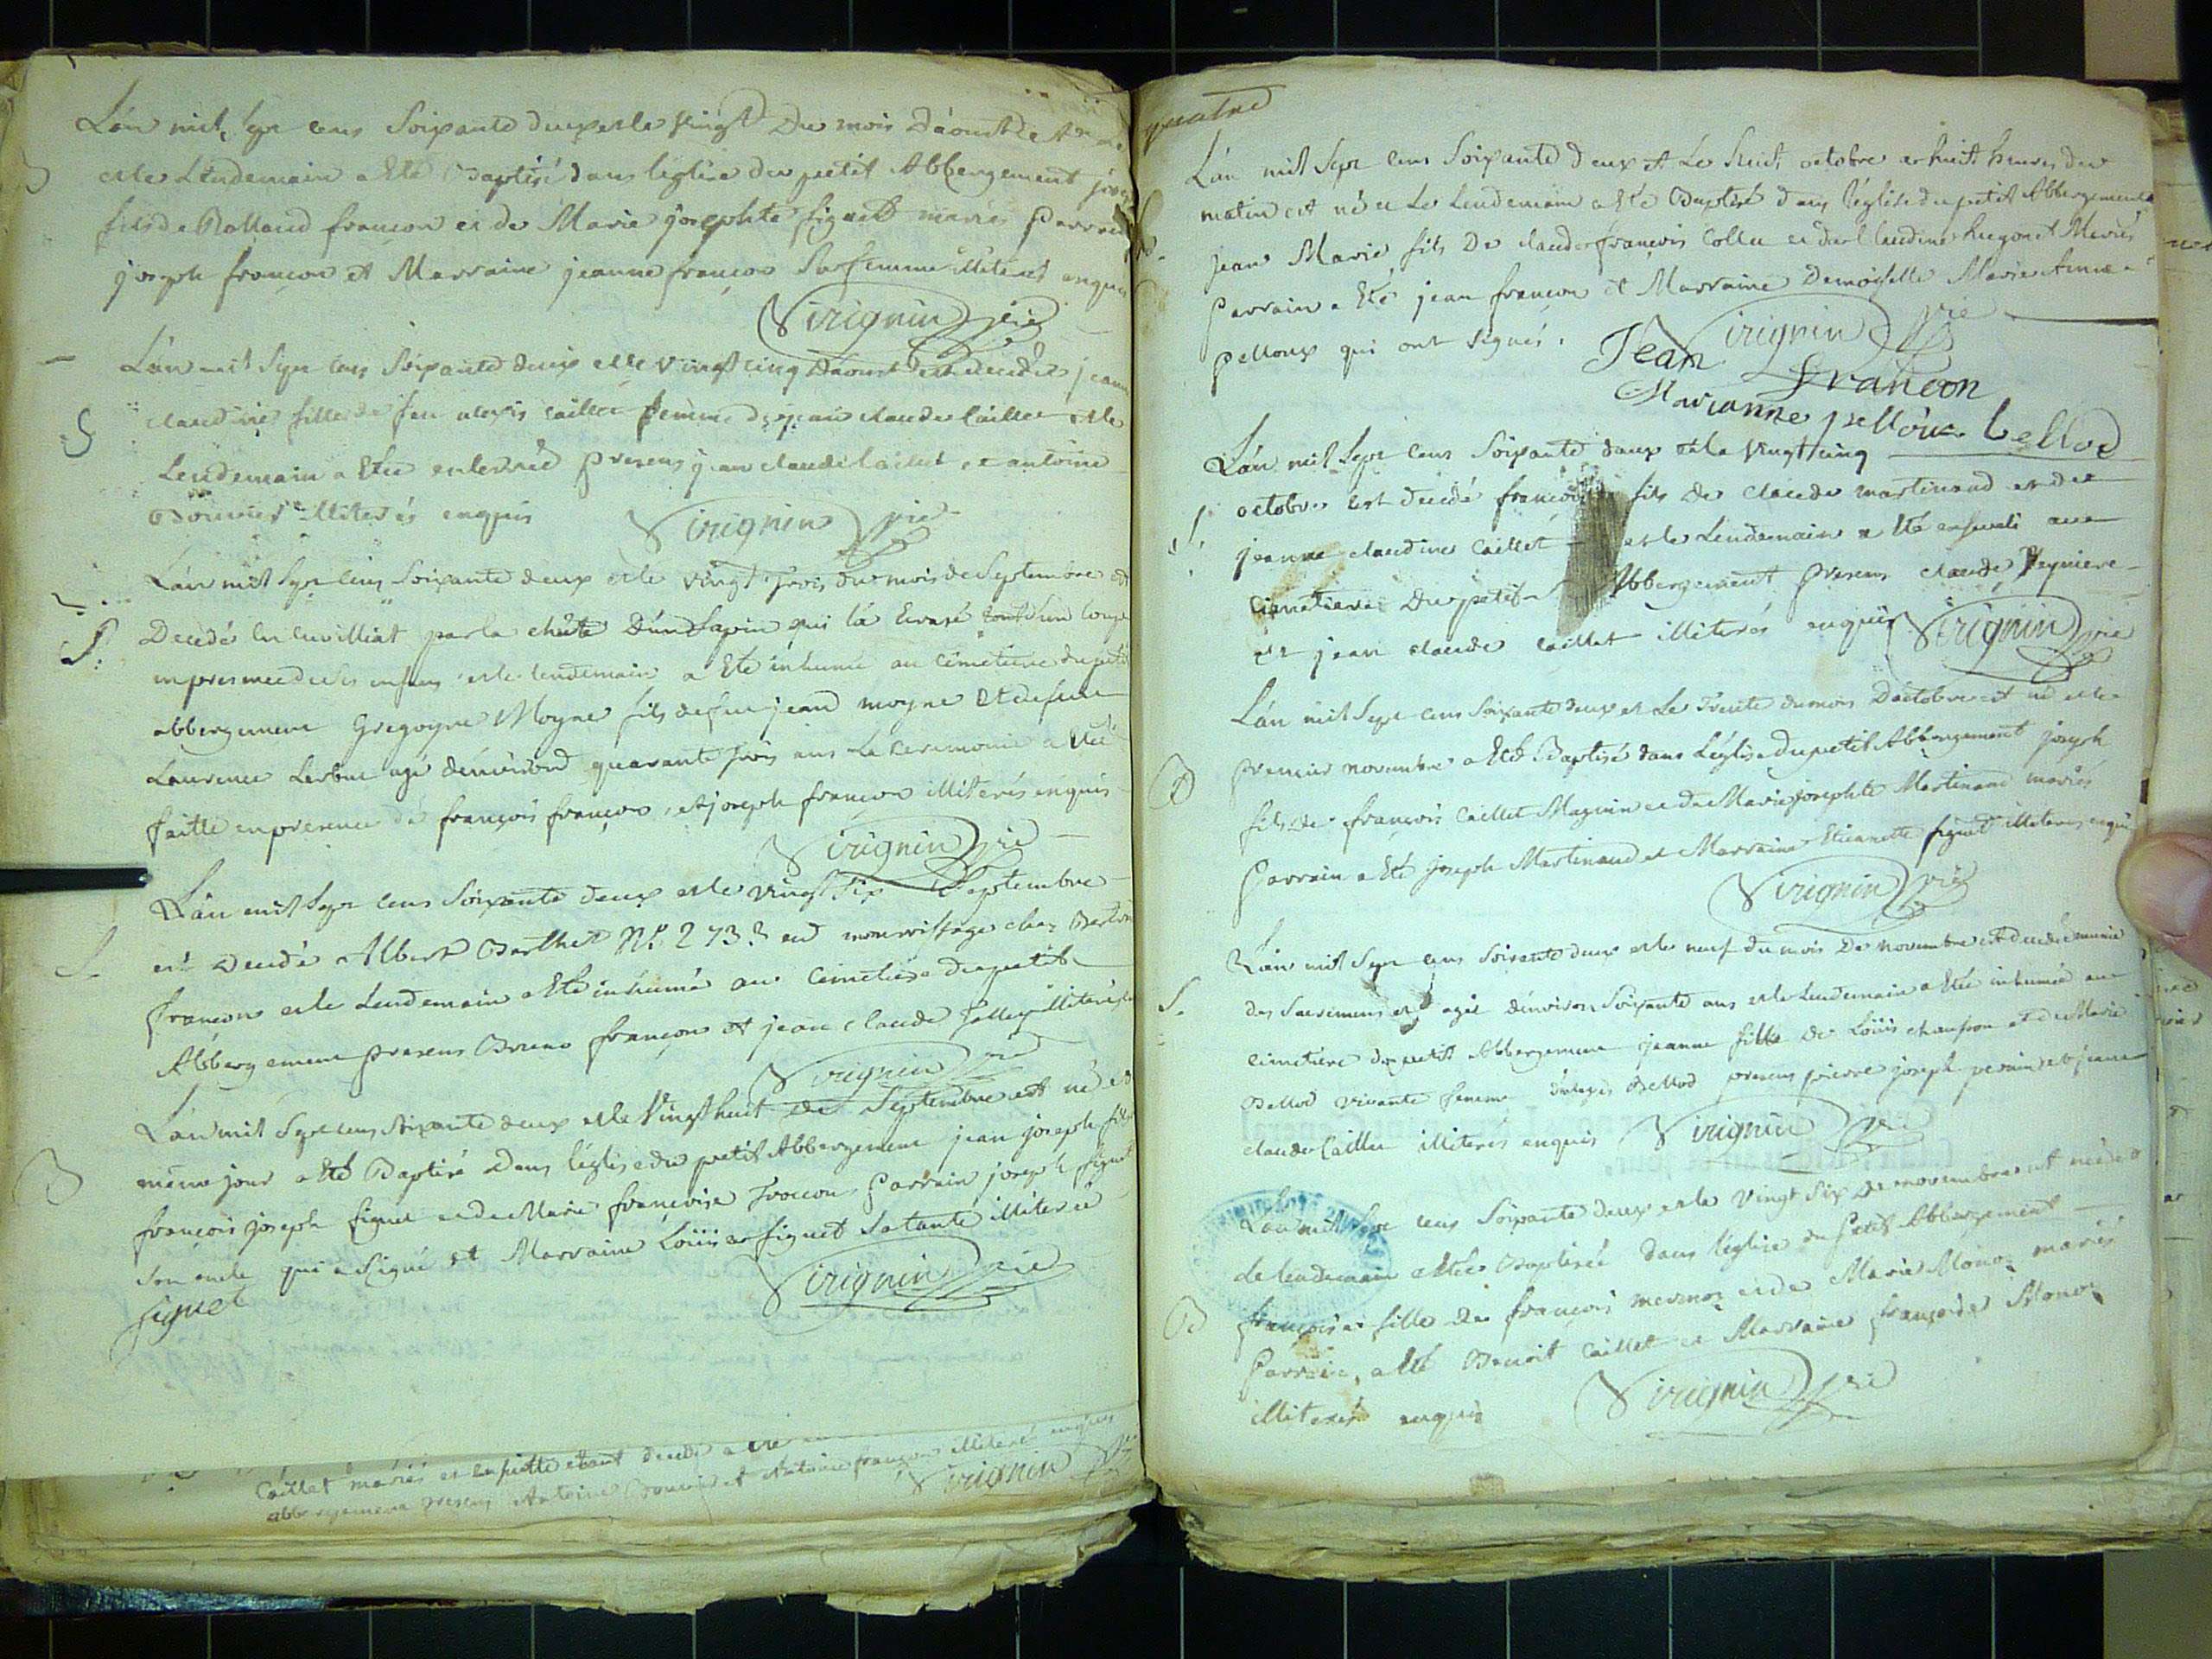 Lán mil Sept cens Soixante deux et le vingt Du mois Daoust est
B
et le Lendemain a Eté Baptisé dans leglise du petit Abbergement
fils de Rolland françon et de Marie josephte figuet mariés Parrain
joseph françon et Marraine jeanne françon Sa femme illiterés enquis
Virignin vic
Lán mil Sept cens Soixante deux et le Vingt cinq Daoust est decedée jeanne
S
claudine fille de feu alexis caillet femme de jean claude caillet et le
Lendemain a Etée enterrée presens jean claude caillet et antoine
illiterés enquis
Virignin vic
Lán mil Sept cens Soixante deux et le vingt Trois du mois de Septembre est
S.
Decedé en Cuvilliat par la chûte Dún Sapin qui lá Ecrasé tout d'un coup
en presence de ses enfens et le lendemain a Eté inhumé au Cimetiere du petit
abbergement Gregoyre Moyne fils de feu jean moyne et de feüe
Laurence agé dénviron quarante Trois ans La Ceremonie a Eté
faitte en presence de françois françon, et joseph françon illiterés enquis
Virignin vic
Lán mil Sept cens Soixante deux et le vingt Six Septembre
S.
est Decedé Albert Barthet N.º 273? en nourrissage chez
françon et le Lendemain a Eté inhumé au Cimetiere du petit
Abbergement presens Bruno françon et jean claude illiterés
Virignin vic
Lán mil Sept cens Soixante deux et le Vingt huit de Septembre est né et
B
même jour a Eté Baptisé Dans léglise du petit Abbergement jean joseph fils
françois joseph figuet et de Marie françoise Parrain joseph figuet
Son oncle qui a Signé et Marraine Loüise figuet Sa tante illiterée
figuet
Virignin vic
Caillet mariés et la petitte etant decedé a eté
abbergement presens Antoine et Antoine françon illiterés enquis
Virignin
quatre
Lán mil Sept cens Soixante deux et Le huit octobre et huit heures du
matin est né et Le Lendemain a Eté Baptisé dans léglise du petit Abbergement
B.
jean Marie fils De claude françois Collet et de Claudine hugonet Mariés
Parrain a Eté jean françon et Marraine Demoiselle Marie Anne
Pelloux qui ont Signés.
Virignin vic
Jean francon
Marianne pelloux Bellod
Lán mil Sept cens Soixante deux et le vingt cinq
S.
octobre est decedé françois fils de claude martinand et de
jeanne claudine Caillet et le Lendemain a Eté enseveli au
Cimetiere Du petit Abbergement presens claude
et jean claude caillet illiterés enquis
Virignin vic
Lán mil Sept cens Soixante deux et Le Trente du mois Doctobre est né et le
B
premier novembre a Eté Baptisé dans Léglise du petit Abbergement joseph
fils de françois Caillet Magnin et de Marie josephte Martinand mariés
Parrain a Eté joseph Martinand et Marraine Etiennette figuet illiterés enquis
Virignin vic
Lán mil Sept cens Soixante deux et le neuf du mois De novembre est decedée munie
S.
des Sacremens et agée dénviron Soixante ans et le Lendemain a Etée inhumée au
Cimetiere du petit Abbergement jeanne fille de Loüis chanson et de Marie
Bellod vivante femme Belloz presens pierre joseph et jean
claude Caillet illiterés enquis
Virignin vic
Lán mil Sept cens Soixante deux et le vingt Six de novembre est née et
Le lendemain a Etée Baptisée dans léglise du Petit Abbergement
B
françoise fille de françois mermoz et de Marie Monoz mariés
Parrain a Eté Benoit Caillet et Marraine françoise Monoz
illiterés enquis
Virignin vic